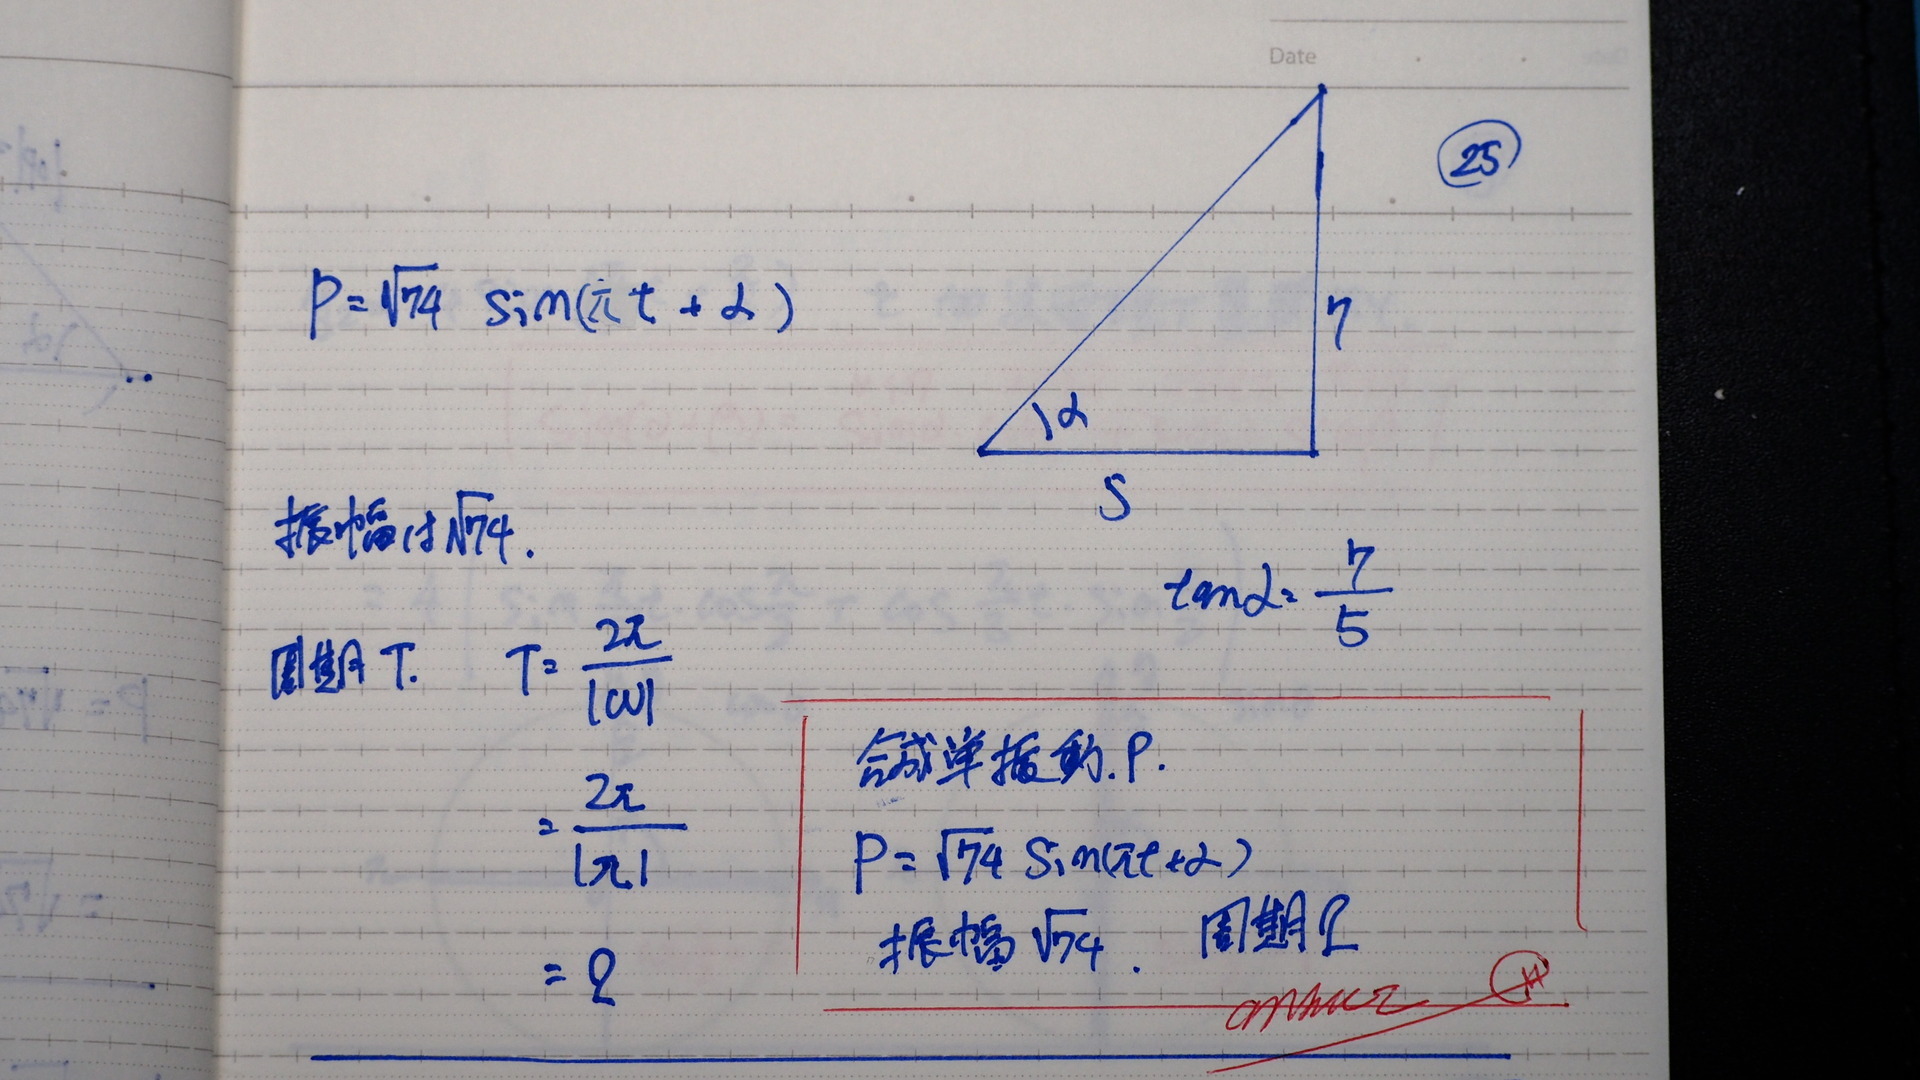 Date
25
P=√74 sin(πt+α)
7
α
5
振幅は√74.
tanα=7/5
周期T. T=2π/|ω|
=2π/|π|
=2
合成単振動.P.
P=√74 sin(πt+α)
振幅√74. 周期2